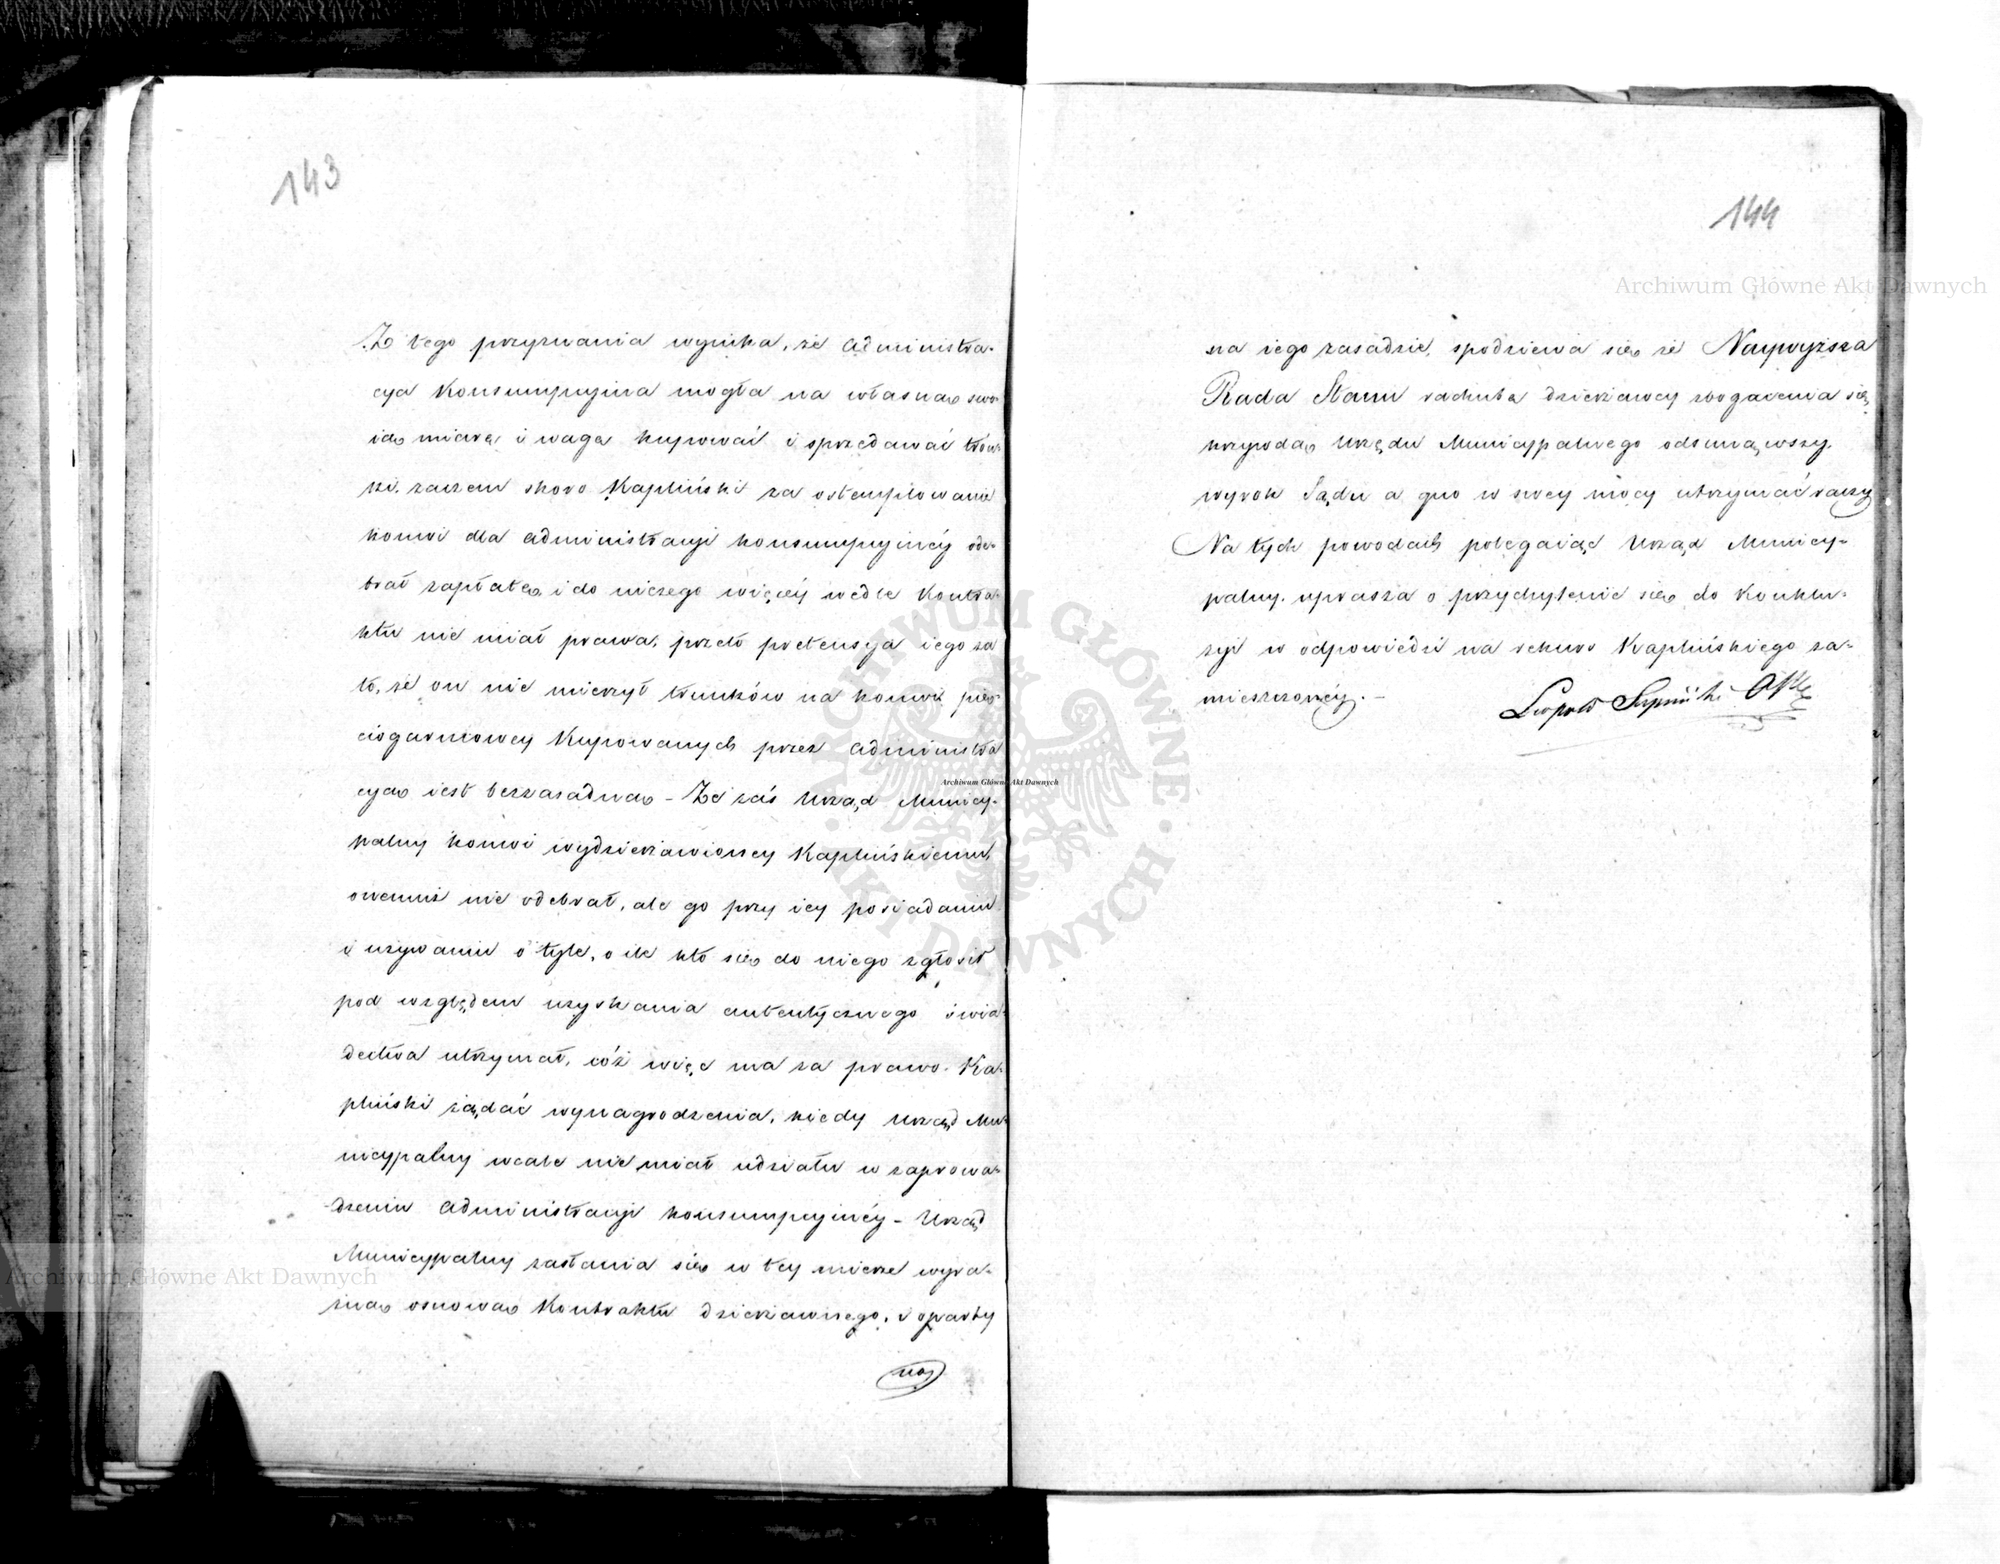 143
Z tego przyznania wynika, że administra-
cya konsumpcyjna mogła na własną swo-
ią miarę i wagę kupować i sprzedawać trun-
ki, zaczem skoro Kapliński za ostemplowanie
konwi dla administracyi konsumpcyjnéy ode-
brał zapłatę, i do niczego więcéy wedle kontra-
ktu nie miał prawa, przeto pretensya iego za
to, że on nie mierzył trunków na konwi pię-
ciogarncowey kupowanych przez administra
cyą iest bezzasadną – Że zaś Urząd Municy-
palny konwi wydzierżawioney Kaplińskiemu,
owemuż nie odebrał, ale go przy iey posiadaniu
i używaniu o tyle, o ile kto się do niego zgłosił
pod względem uzyskania autentycznego świa-
dectwa utrzymał, cóż więc ma za prawo Ka-
pliński żądać wynagrodzenia, kiedy Urząd Mu-
nicypalny wcale nie miał udziału w zaprowa-
dzeniu administracyi konsumpcyjnéy – Urząd
Municypalny zasłania się w tey mierze wyra-
źną osnową kontraktu dzierżawnego, i oparty
na
144
na iego zasadzie, spodziewa się że Naywyższa
Rada Stanu rachubę dzierżawcy zbogacenia się
krzywdą Urzędu Municypalnego odsunąwszy,
wyrok Sądu a quo w swey mocy utrzymać raczy
Na tych powodach polegaiąc Urząd Municy-
palny, uprasza o przychylenie się do konklu-
zyi w odpowiedzi na rekurs Kaplińskiego za-
mieszczonéy. –
Leopold
Archiwum Główne Akt Dawnych
Archiwum Główne Akt Dawnych
Archiwum Główne Akt Dawnych
ARCHIWUM GŁÓWNE • AKT DAWNYCH •